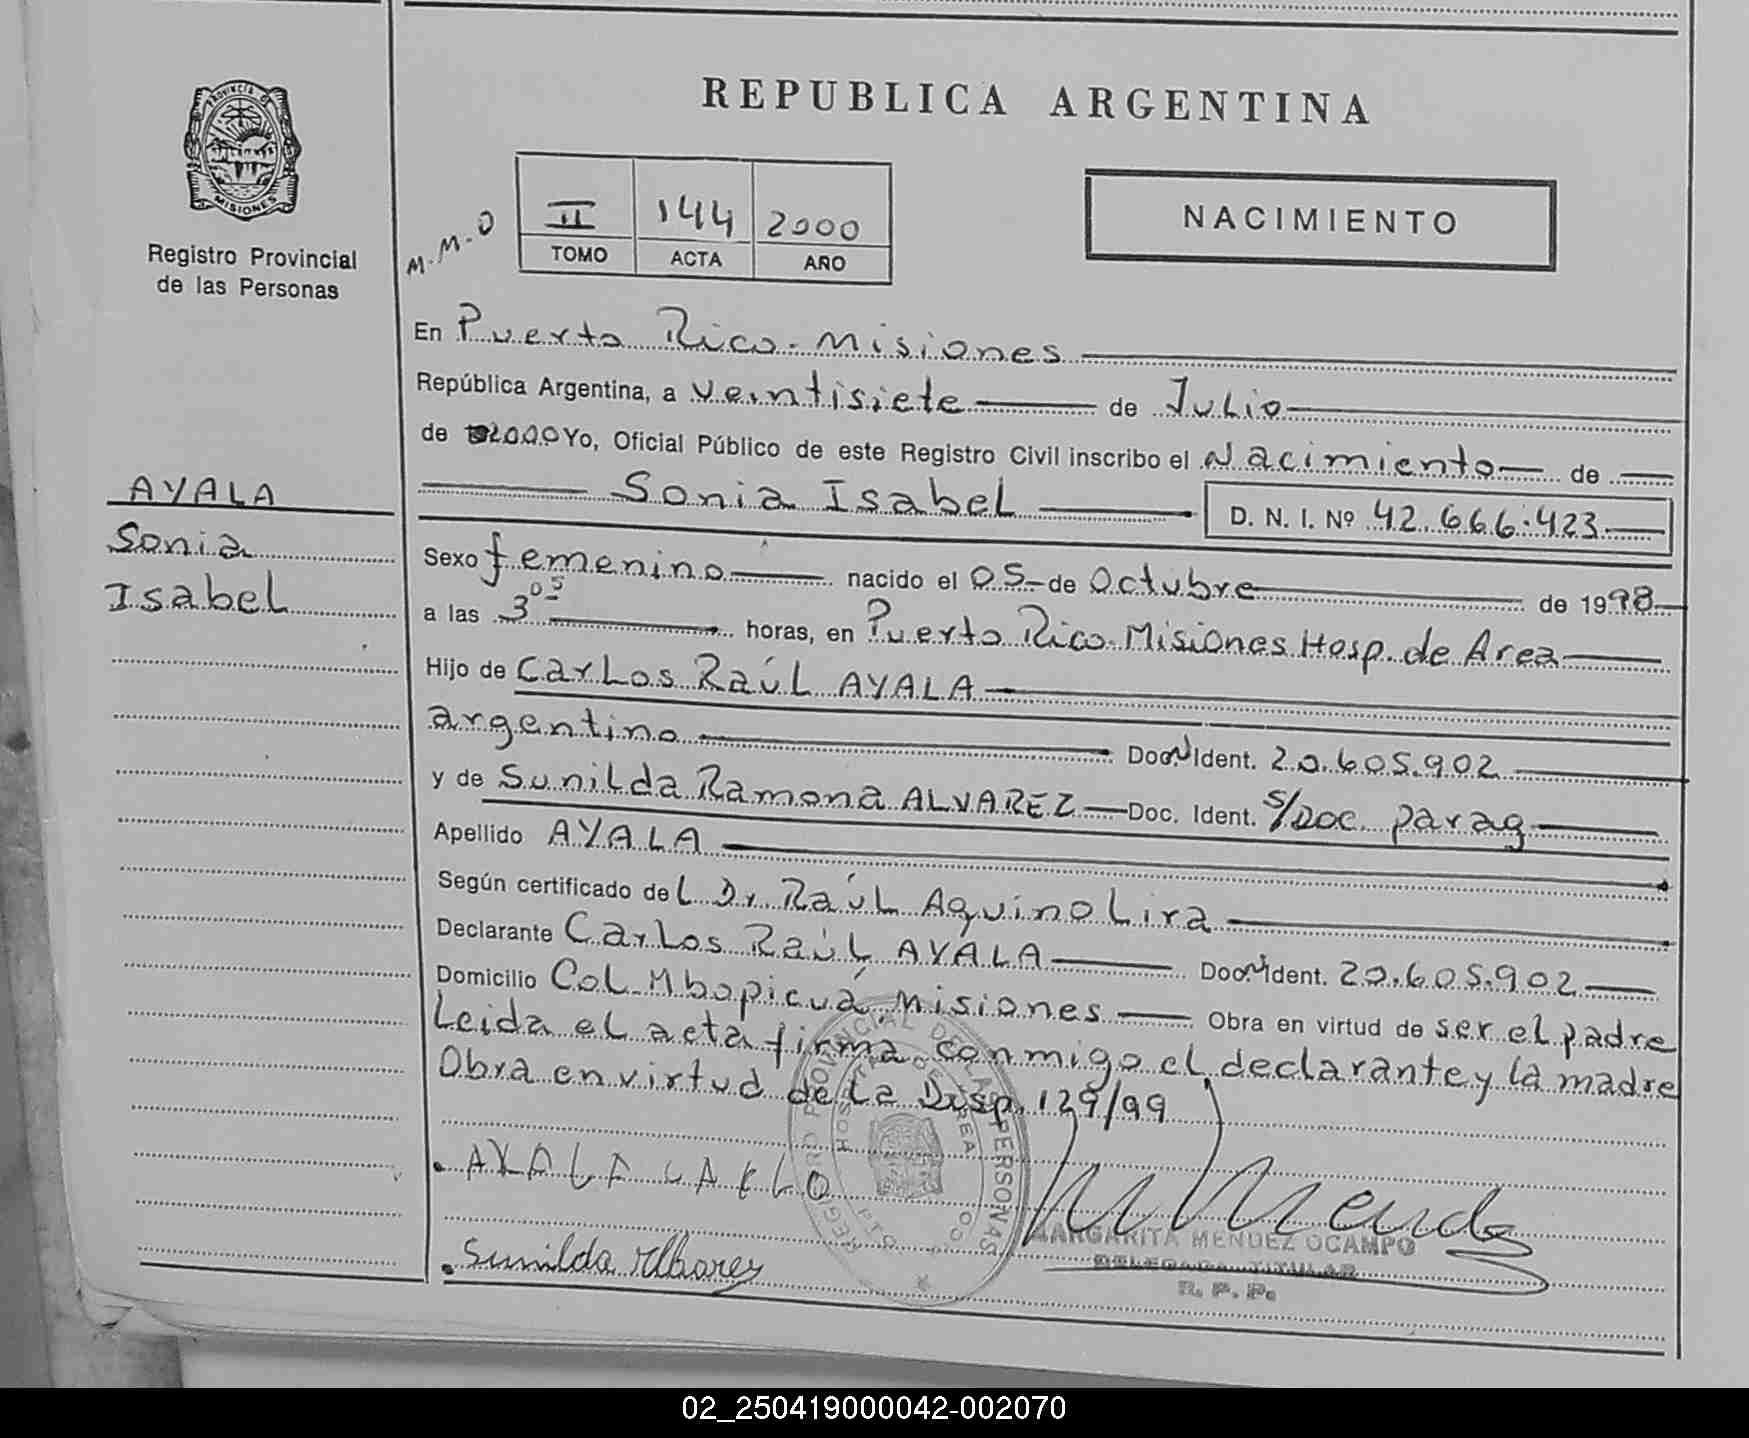 REPUBLICA ARGENTINA
PROVINCIA DE
MISIONES
Registro Provincial
de las Personas
M.M.O
II 144 2000
TOMO ACTA AÑO
NACIMIENTO
En Puerto Rico - Misiones
República Argentina, a veintisiete de Julio
de 2000 Yo, Oficial Público de este Registro Civil inscribo el Nacimiento de
Sonia Isabel D. N. I. Nº 42.666.423
AYALA
Sonia
Isabel
Sexo femenino nacido el 05 de Octubre de 1998
a las 3 05 horas, en Puerto Rico Misiones Hosp. de Area
Hijo de Carlos Raúl AYALA
argentino Doc Ident. 20.605.902
y de Sunilda Ramona ALVAREZ Doc. Ident. S/Doc parag
Apellido AYALA
Según certificado del Dr. Raúl Aquino Lira
Declarante Carlos Raúl AYALA Doc Ident. 20.605.902
Domicilio Col. Mbopicuá, Misiones Obra en virtud de ser el padre
Leida el acta firma conmigo el declarante y la madre
Obra en virtud de la Disp. 129/99
AYALA CARLO
Sunilda Alvarez
REGISTRO PROVINCIAL DE LAS PERSONAS
HOSPITAL DE AREA
PTO RICO
MARGARITA MENDEZ OCAMPO
DELEGADA TITULAR
R. P. P.
02_250419000042-002070